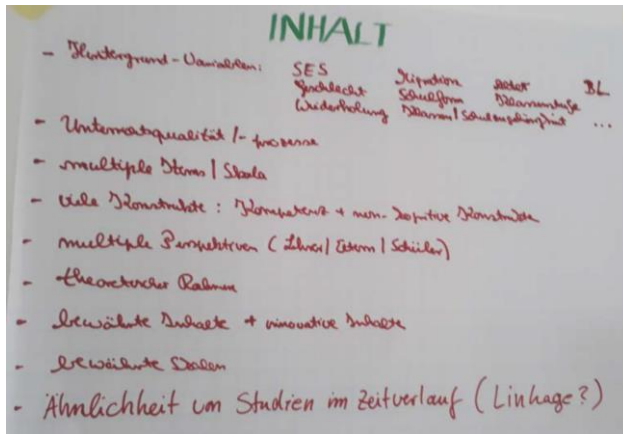 INHALT
- Hintergrund-Variablen: SES Migration Alter BL
Geschlecht Schulform Klassenstufe
Wiederholung Klassen/Schulzugehörigkeit ...
- Unterrichtsqualität /-prozesse
- multiple Items / Skala
- viele Konstrukte: Kompetenz + non-kognitive Konstrukte
- multiple Perspektiven (Lehrer/ Eltern / Schüler)
- theoretischer Rahmen
- bewährte Inhalte + innovative Inhalte
- bewährte Skalen
- Ähnlichheit von Studien im Zeitverlauf (Linhage?)